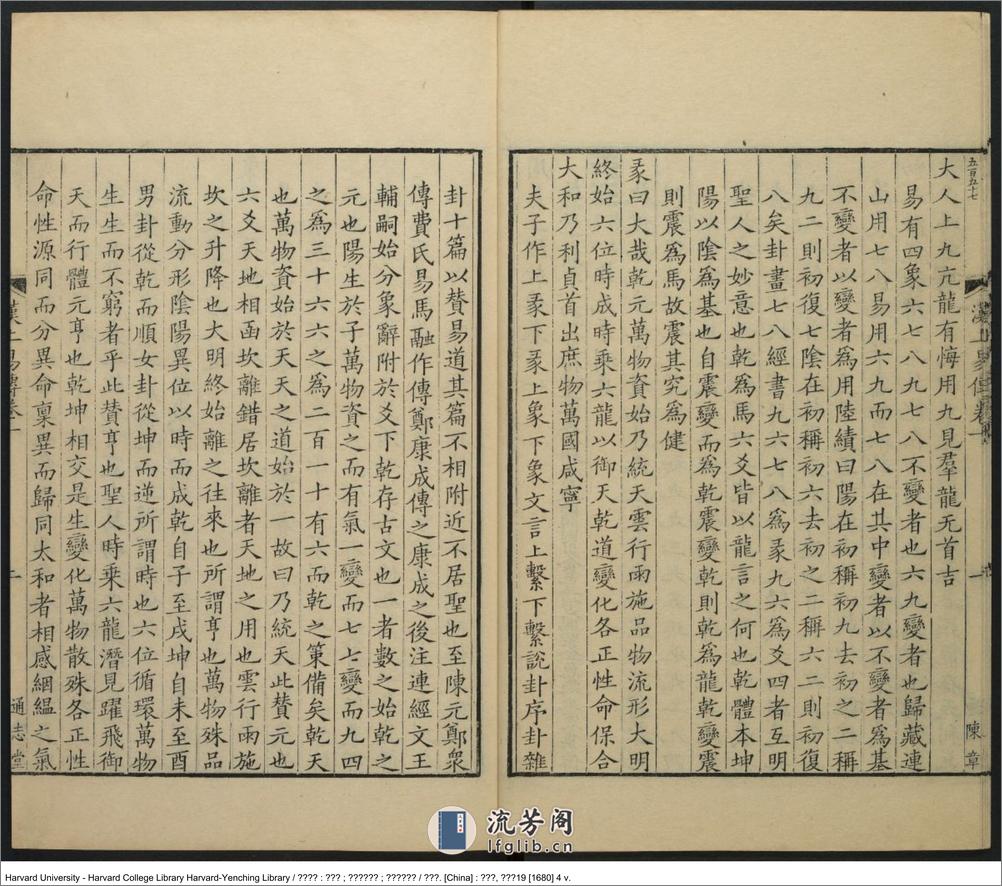 五百五十七
大人上九亢龍有悔用九見羣龍无首吉
易有四象六七八九七八不變者也六九變者也歸藏連
山用七八易用六九而七八在其中變者以不變者爲基
不變者以變者爲用陸績曰陽在初稱初九去初之二稱
九二則初復七陰在初稱初六去初之二稱六二則初復
八矣卦畫七八經書九六七八爲彖九六爲爻四者互明
聖人之妙意也乾爲馬六爻皆以龍言之何也乾體本坤
陽以陰爲基也自震變而爲乾震變乾則乾爲龍乾變震
則震爲馬故震其究爲健
彖曰大哉乾元萬物資始乃統天雲行雨施品物流形大明
終始六位時成時乘六龍以御天乾道變化各正性命保合
大和乃利貞首出庶物萬國咸寧
夫子作上彖下彖上象下象文言上繫下繫說卦序卦雜
漢上易傳卷一
一
陳章
卦十篇以賛易道其篇不相附近不居聖也至陳元鄭衆
傳費氏易馬融作傳鄭康成傳之康成之後注連經文王
輔嗣始分象辭附於爻下乾存古文也一者數之始乾之
元也陽生於子萬物資之而有氣一變而七七變而九四
之爲三十六六之爲二百一十有六而乾之策備矣乾天
也萬物資始於天天之道始於一故曰乃統天此賛元也
六爻天地相函坎離錯居坎離者天地之用也雲行雨施
坎之升降也大明終始離之往來也所謂亨也萬物殊品
流動分形陰陽異位以時而成乾自子至戌坤自未至酉
男卦從乾而順女卦從坤而逆所謂時也六位循環萬物
生生而不窮者乎此賛亨也聖人時乘六龍潛見躍飛御
天而行體元亨也乾坤相交是生變化萬物散殊各正性
命性源同而分異命稟異而歸同太和者相感絪縕之氣
漢上易傳卷一
二
通志堂
流芳阁
lfglib.cn
Harvard University - Harvard College Library Harvard-Yenching Library / ???? : ??? ; ?????? ; ?????? / ???. [China] : ???, ???19 [1680] 4 v.